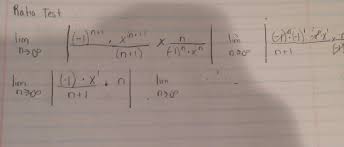 Ratio Test
lim n→∞ | (-1)^{n+1} · x^{n+1} / (n+1) × n / (-1)^n · x^n | lim n→∞ | (-1)^n (-1)^1 · x / n+1
lim n→∞ | (-1) · x^1 / n+1 · n | lim n→∞